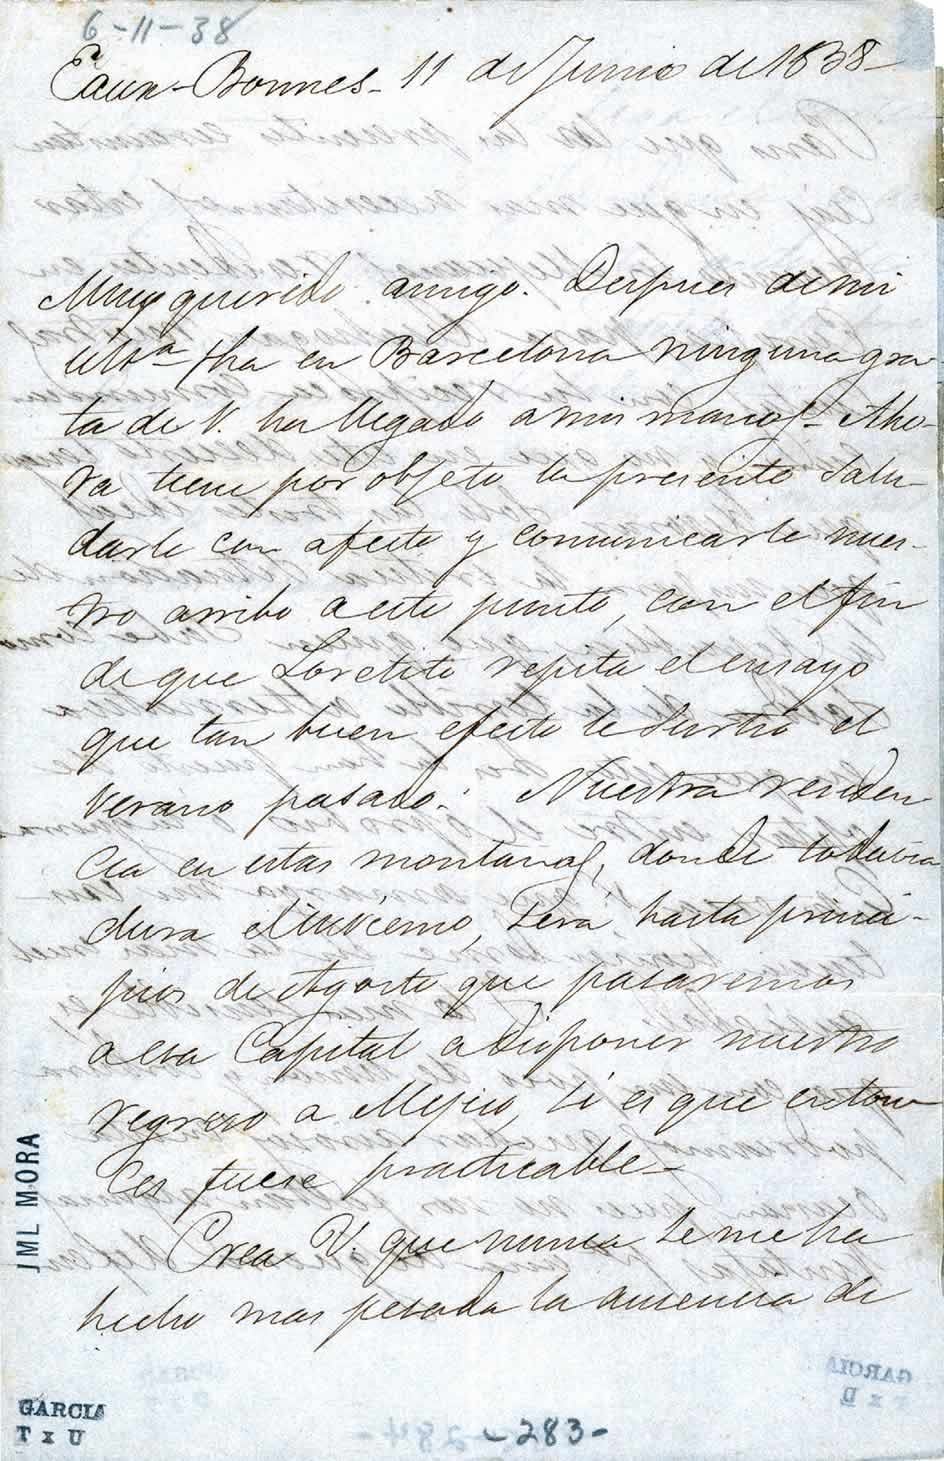 6-11-38
Eaux-Bonnes - 11 de Junio de 1838-
Muy querido amigo. Despues de mi
ult.a fha en Barcelona ninguna gra-
ta de V. ha llegado a mis manos - Aho-
ra tiene por objeto la presente salu-
darle con afecto y comunicarle nues-
tro arribo a este punto, con el fin
de que Loretito repita el ensayo
que tan buen efecto le surtió el
verano pasado. Nuestra residen
cia en estas montanas, donde todavia
dura el invierno, será hasta princi-
pios de Agosto que pasaremos
a esa Capital a disponer nuestro
regreso a Mejico, si es que enton
ces fuese practicable-
Crea V. que nunca se me ha
hecho mas pesada la ausencia de
JML MORA
GARCIA
T x U
-283-